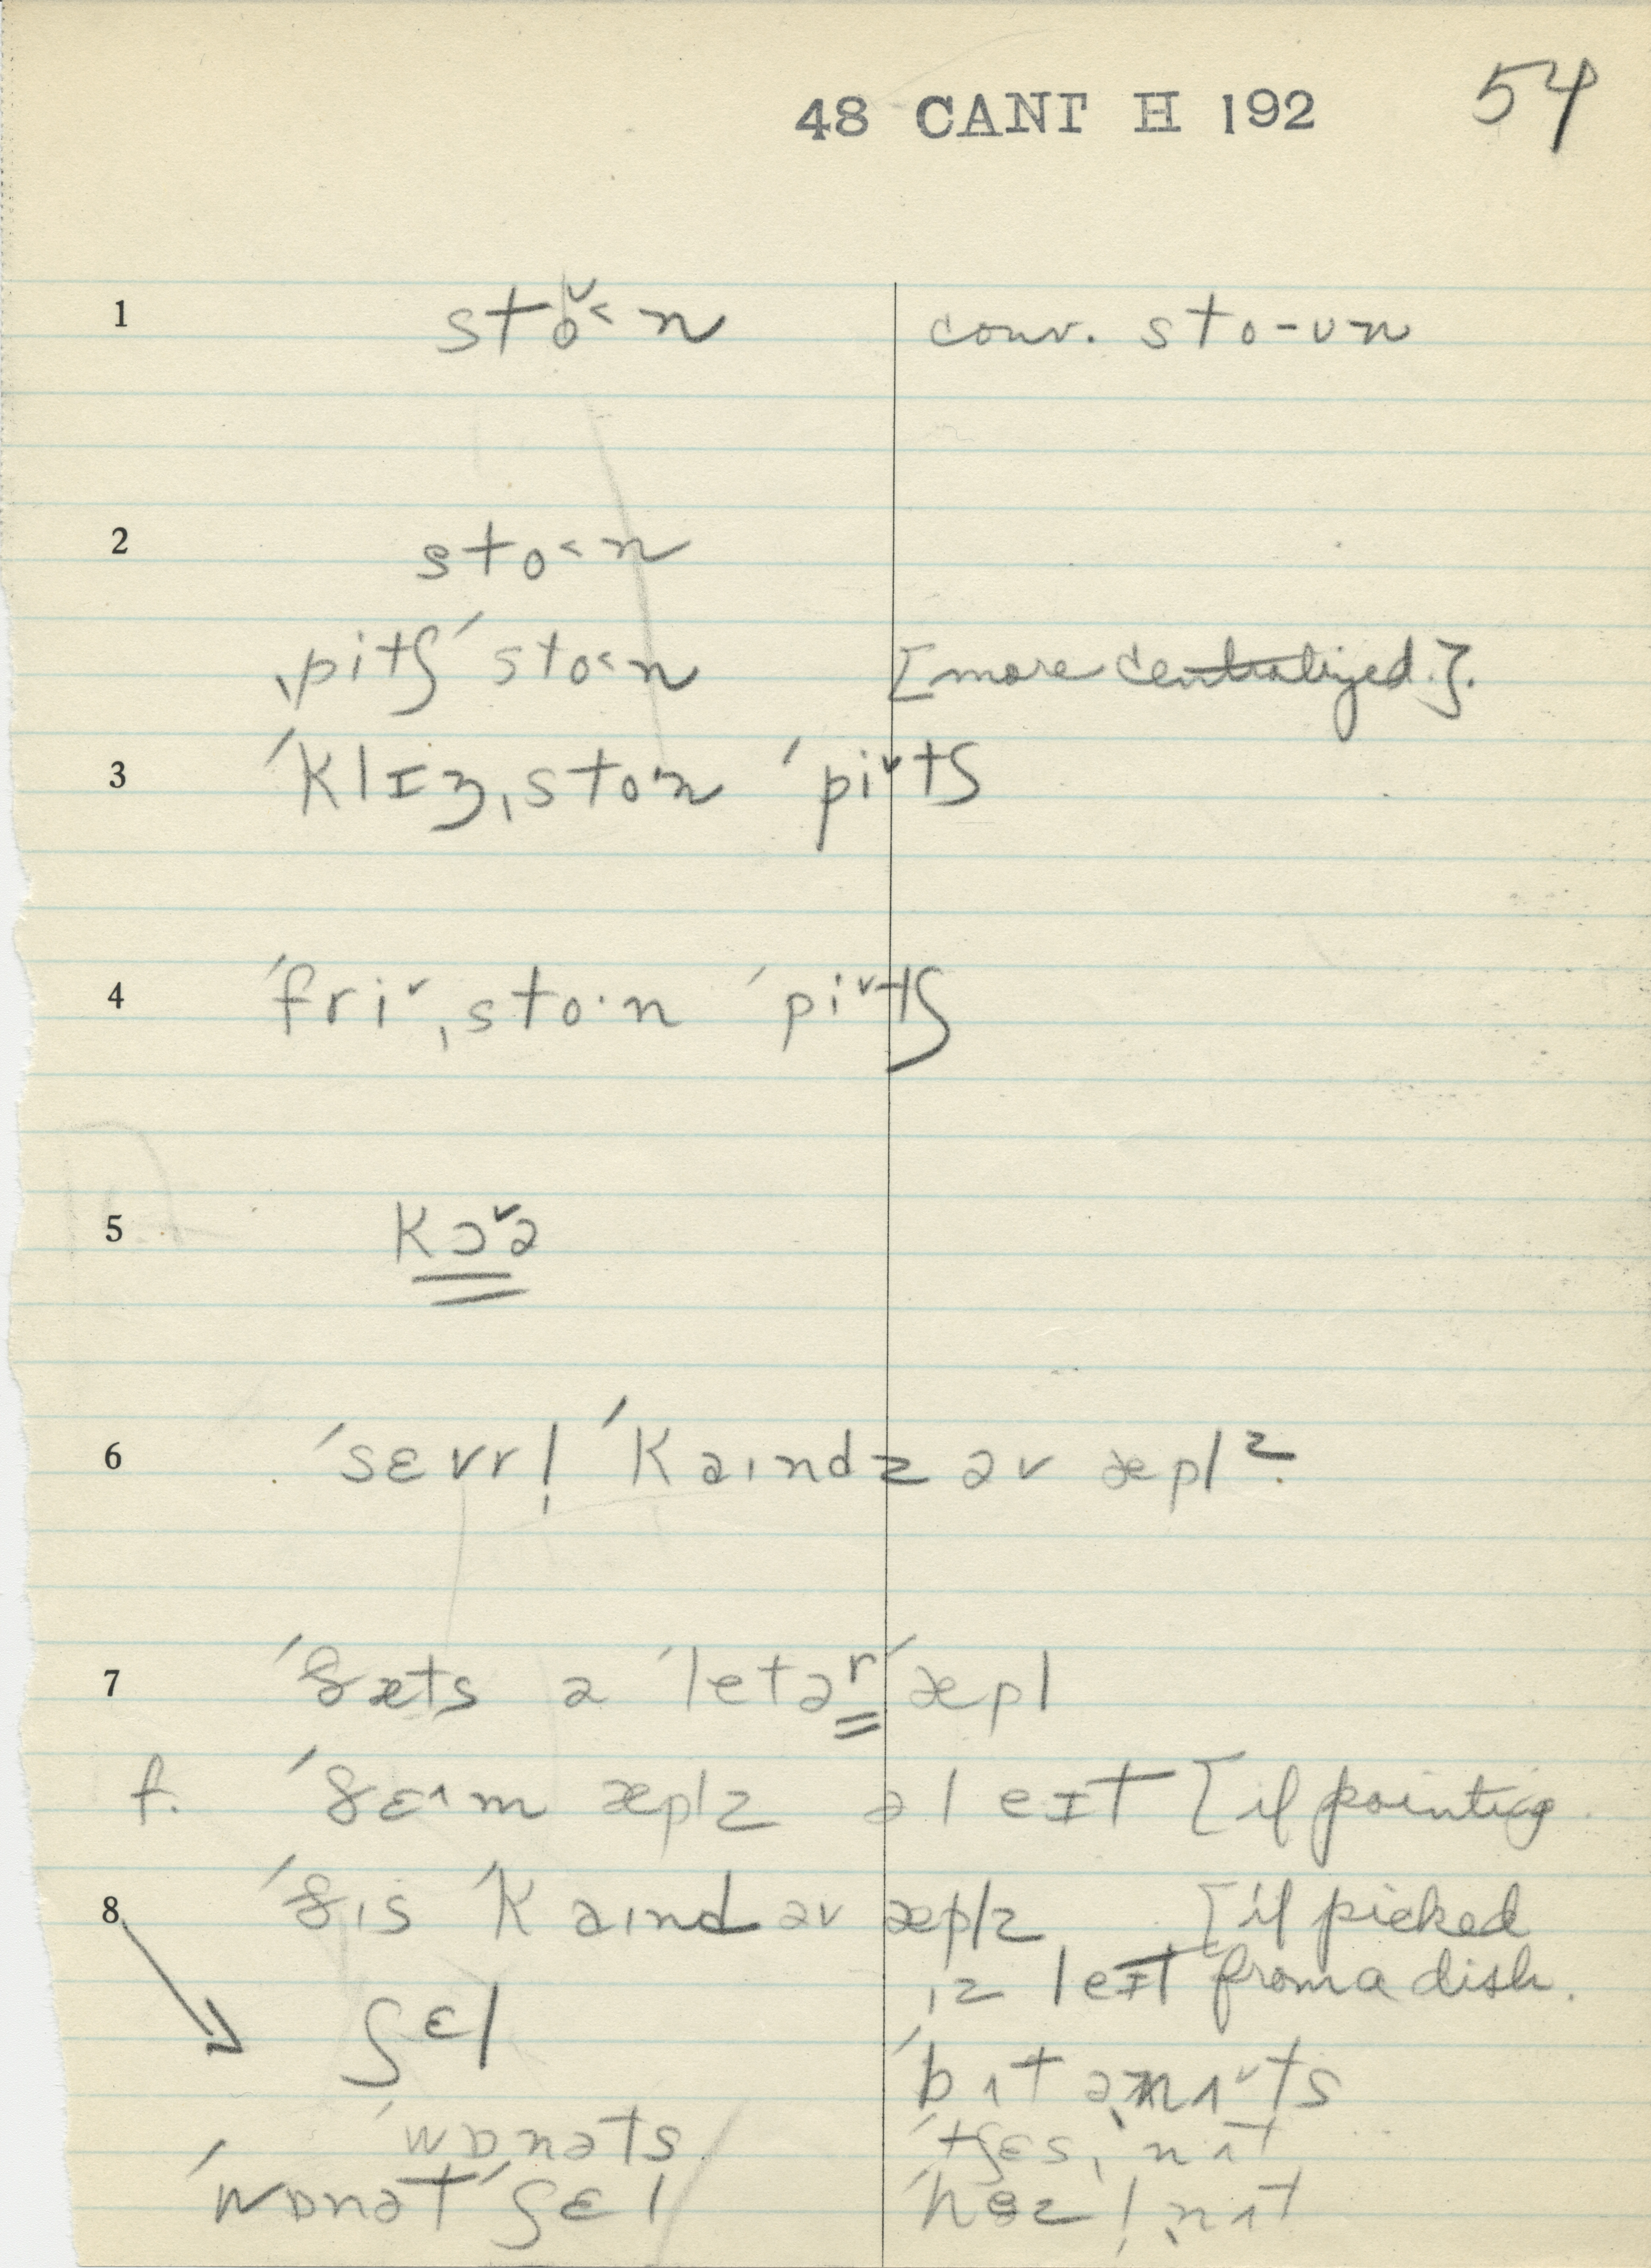 48 CANT H 192 54
1 sto̬˂n conv. sto-ʊn
2 sto˂n
ˌpitʃ ˈsto˂n [more centralized.].
3 ˈklɪŋˌsto·n ˈpiˇtʃ
4 ˈfriˇˌsto·n ˈpiˇtʃ
5 kɔˇə
6 ˈsɛvr̩ ˈkaɪndz əv æplz.
7 ˈðæts ə ˈletər ˈæpl
f. ˈðɛ^m æplz ə leɪt [if pointing
8 ˈðɪs ˈkaɪnd əv æplz [if picked
ɪz leɪt from a dish.
ʃɛl ˈbʌtəˌnʌˇts
ˈwɒnəts ˈtʃɛsˌnʌt
ˈwɒnət ˈʃɛl